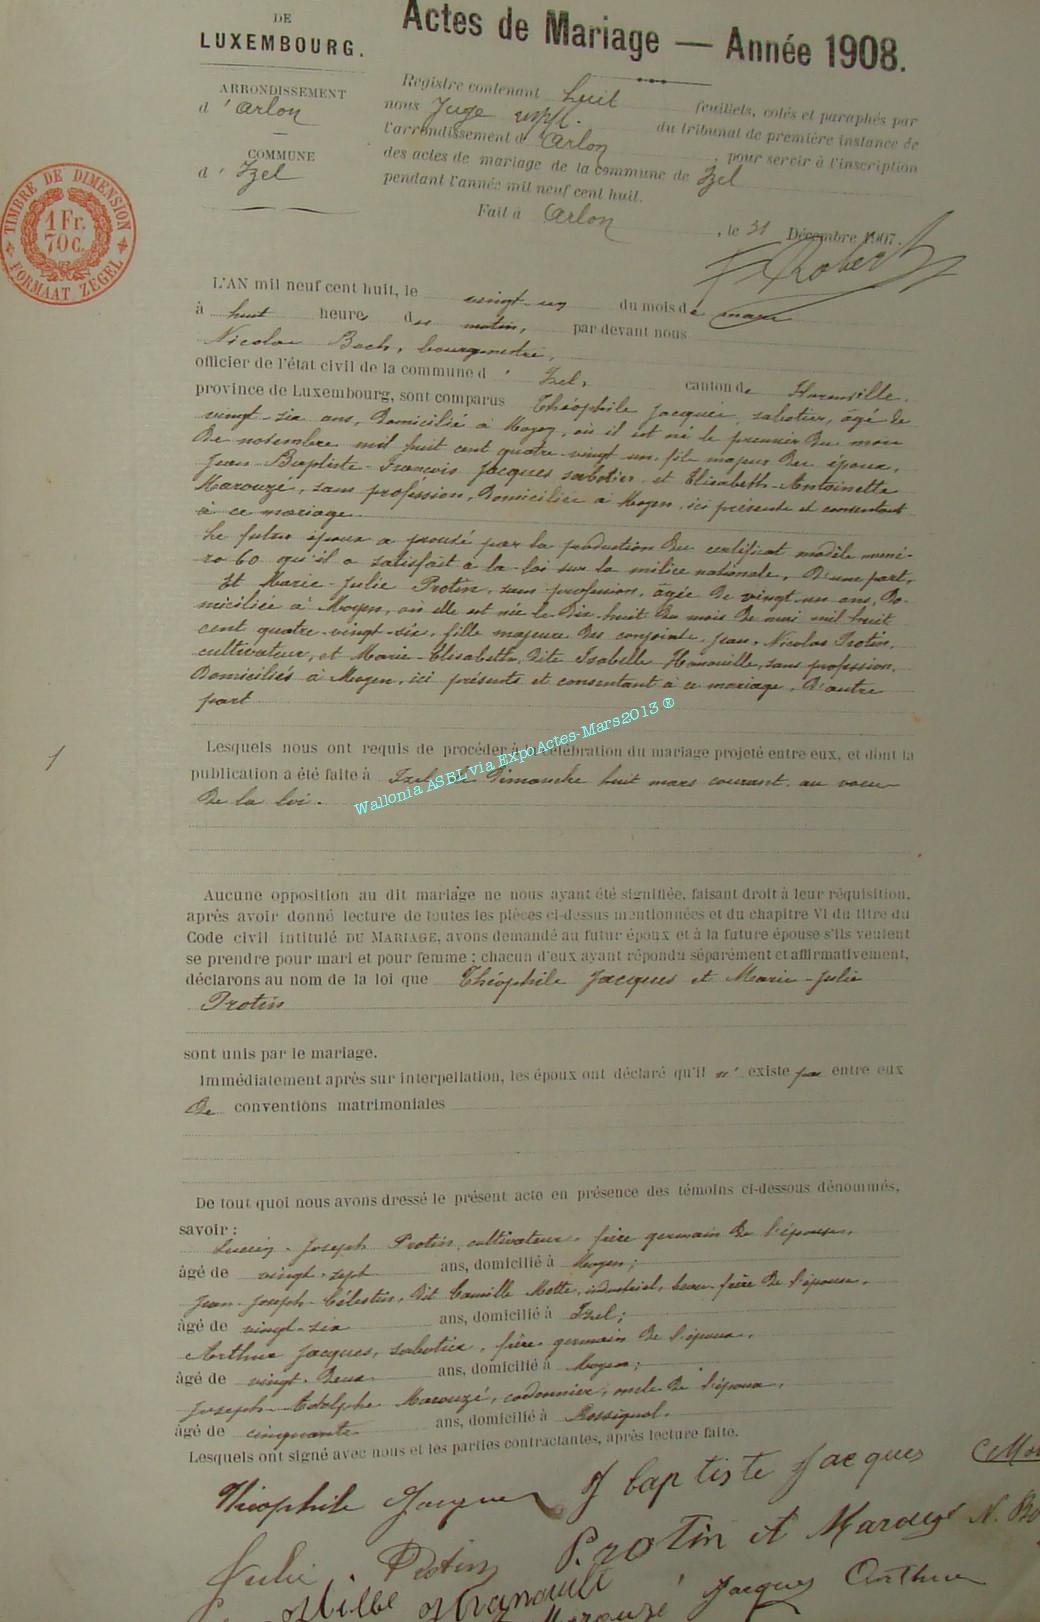 DE
LUXEMBOURG.
ARRONDISSEMENT
d'Arlon
COMMUNE
d'Izel
TIMBRE DE DIMENSION
1 Fr.
70 c.
FORMAAT ZEGEL
Actes de Mariage — Année 1908.
Registre contenant huit feuillets, cotés et paraphés par
nous Juge du tribunal de première instance de
l'arrondissement d'Arlon, pour servir à l'inscription
des actes de mariage de la commune de Izel
pendant l'année mil neuf cent huit.
Fait à Arlon, le 31 Décembre 1907.
L'AN mil neuf cent huit, le vingt-un du mois de mars
à huit heures du matin, par devant nous
Nicolas Bach, bourgmestre,
officier de l'état civil de la commune d'Izel, canton de Florenville,
province de Luxembourg, sont comparus Théophile Jacques, sabotier, âgé de
vingt-six ans, domicilié à Moyen, où il est né le premier du mois
de novembre mil huit cent quatre-vingt un, fils majeur des époux,
Jean-Baptiste-François Jacques sabotier, et Elisabeth-Antoinette
Marouzé, sans profession, domiciliés à Moyen, ici présents et consentant
à ce mariage.
Le futur époux a prouvé par la production du certificat modèle numé-
ro 60 qu'il a satisfait à la loi sur la milice nationale, d'une part,
Et Marie-Julie Protin, sans profession, âgée de vingt-un ans, do-
miciliée à Moyen, où elle est née le dix-huit du mois de mai mil huit
cent quatre-vingt-six, fille majeure des conjoints Jean-Nicolas Protin,
cultivateur, et Marie-Elisabeth, dite Isabelle sans profession,
domiciliés à Moyen, ici présents et consentant à ce mariage, d'autre
part
1
Lesquels nous ont requis de procéder à la célébration du mariage projeté entre eux, et dont la
publication a été faite à Izel, le Dimanche huit mars courant, au vœu
de la loi.
Wallonia ASBL via ExpoActes-Mars2013 ®
Aucune opposition au dit mariage ne nous ayant été signifiée, faisant droit à leur réquisition,
après avoir donné lecture de toutes les pièces ci-dessus mentionnées et du chapitre VI du titre du
Code civil intitulé DU MARIAGE, avons demandé au futur époux et à la future épouse s'ils veulent
se prendre pour mari et pour femme ; chacun d'eux ayant répondu séparément et affirmativement,
déclarons au nom de la loi que Théophile Jacques et Marie-Julie
Protin
sont unis par le mariage.
Immédiatement après sur interpellation, les époux ont déclaré qu'il n'existe pas entre eux
de conventions matrimoniales
De tout quoi nous avons dressé le présent acte en présence des témoins ci-dessous dénommés,
savoir :
Lucien-Joseph Protin, cultivateur, frère germain de l'épouse,
âgé de vingt-sept ans, domicilié à Moyen;
Jean-Joseph-Célestin, dit Camille Mette, industriel, beau-frère de l'épouse,
âgé de vingt-six ans, domicilié à Izel;
Arthur Jacques, sabotier, frère germain de l'époux,
âgé de vingt-deux ans, domicilié à Moyen;
Joseph-Adolphe Marouzé, cordonnier, oncle de l'époux,
âgé de cinquante ans, domicilié à Rossignol.
Lesquels ont signé avec nous et les parties contractantes, après lecture faite.
Théophile Jacques J baptiste Jacques
Julie Protin Protin et Marouzé N.
Jacques Arthur
Marouzé